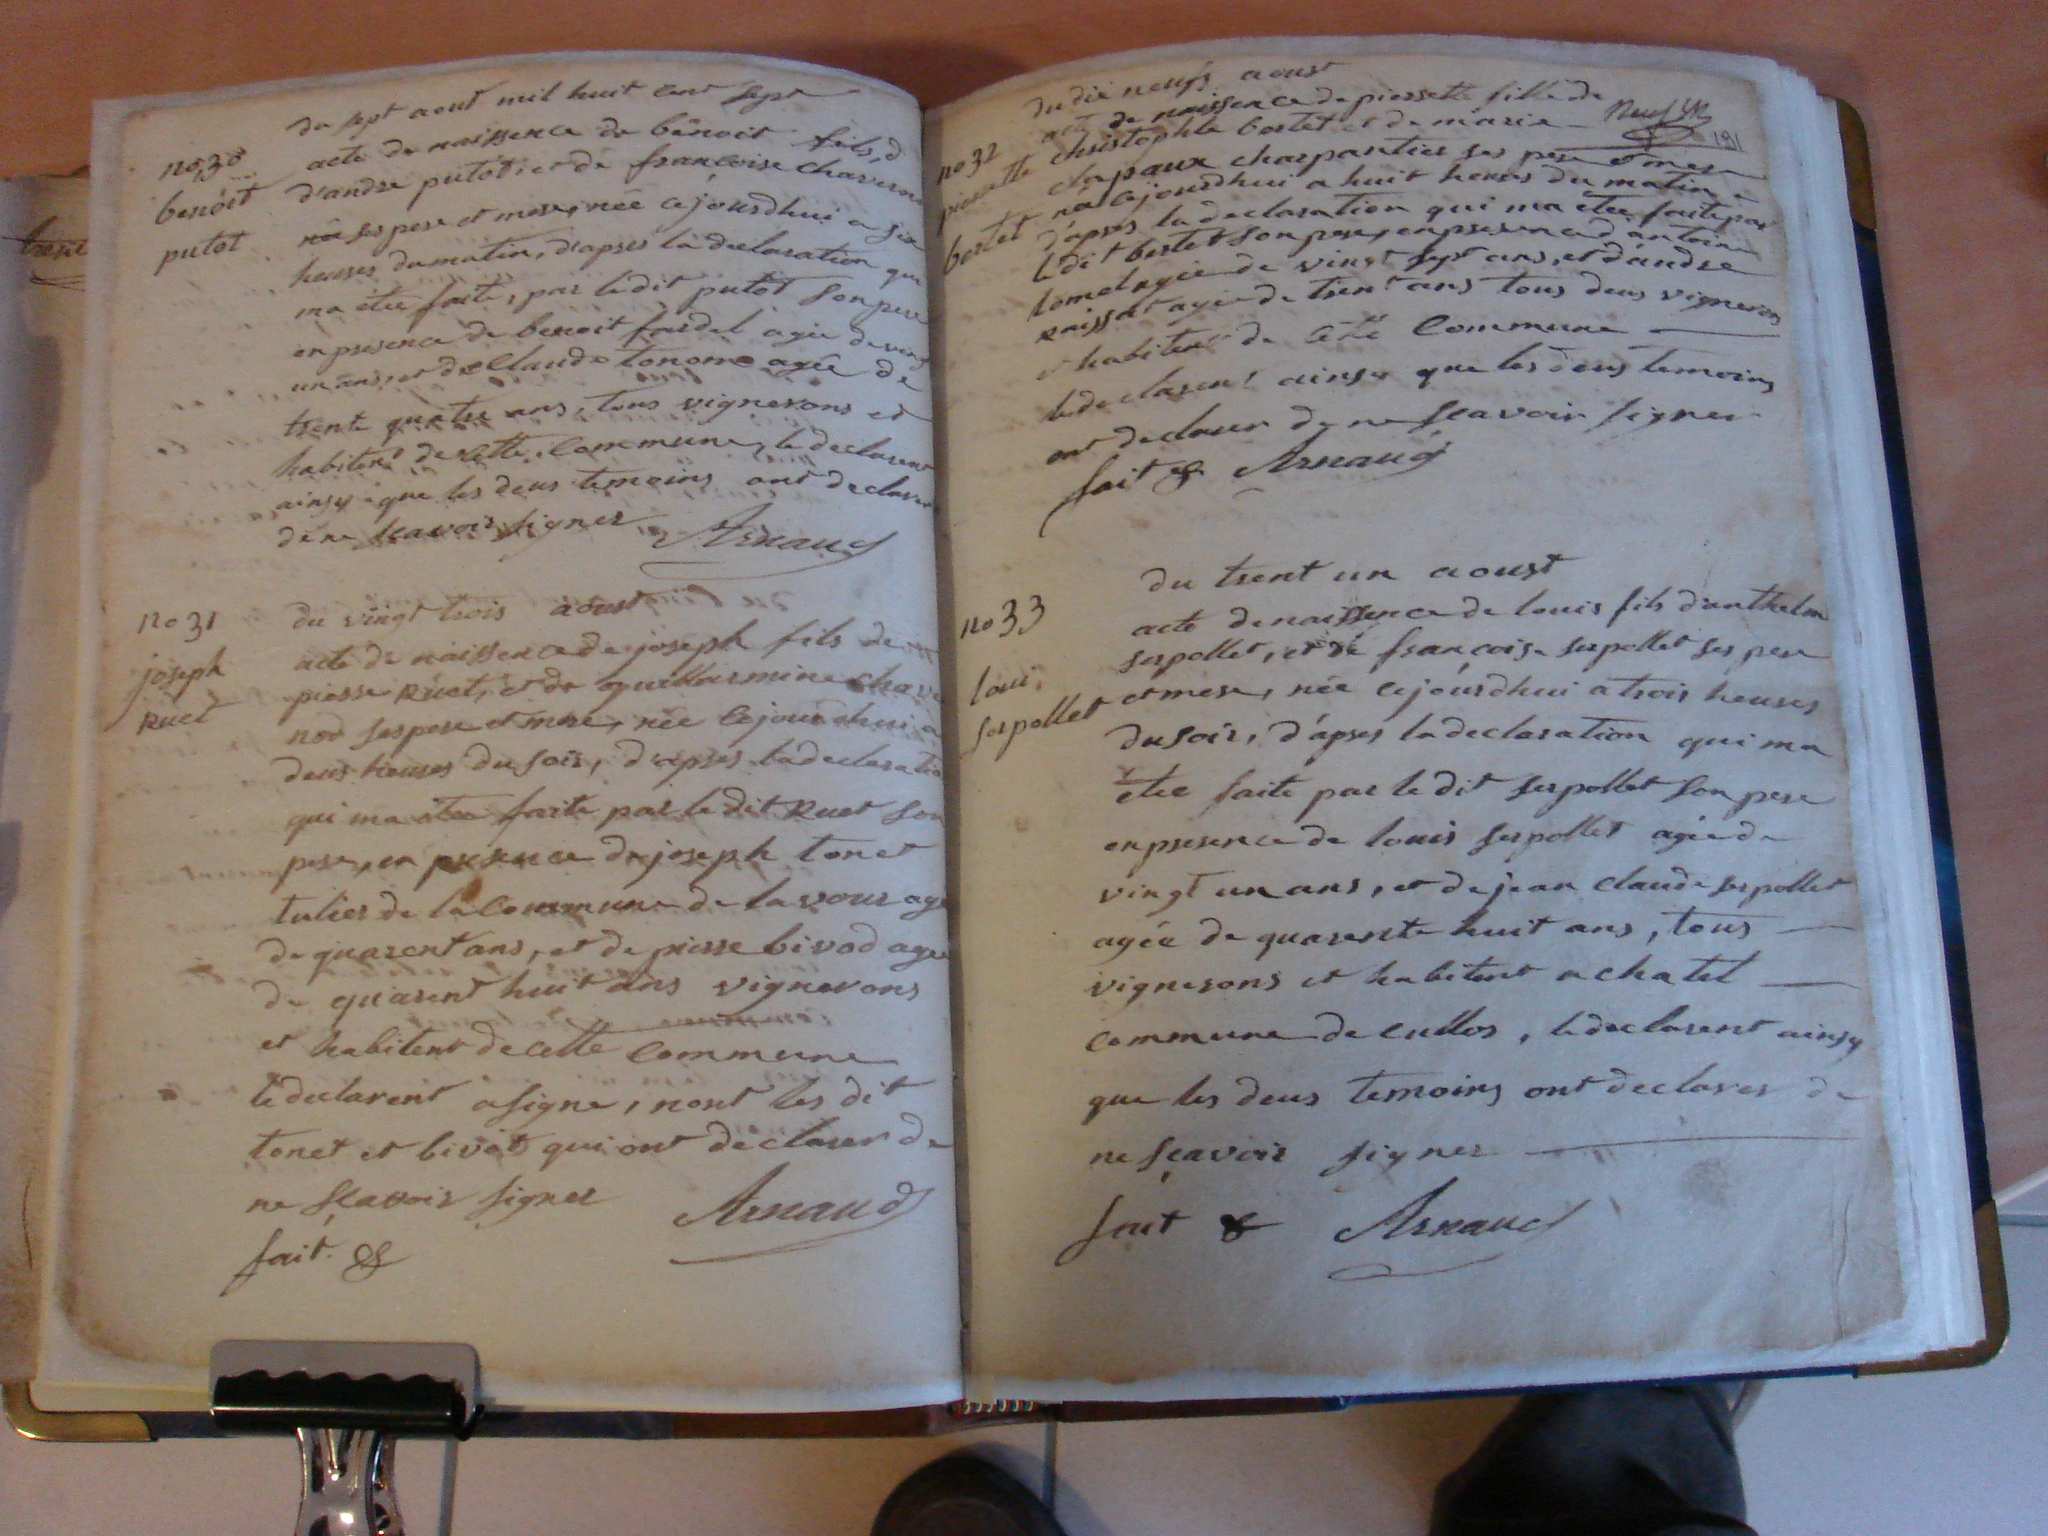 du sept aout mil huit cent sept
no 30
acte de naissence de bênoit fils, d
benoit
d'andre putod, et de françoise chavern
putot
née ses pere et mere, née cejourdhui a six
heures du matin, d'apres la declaration qui
ma etee faite, par ledit putot son pere
en presence de benoit fardel agée de vingt
un ans, et de Claude tonom agée de
trente quatre ans, tous vignerons et
habitent de cette Commune, le declarent
ainsy que les deus temoins ont declarer
de ne sçavoir signer Arnaud
no 31
du vingt trois aoust
joseph
acte de naissence de joseph fils de
Ruet
pierre Ruet, et de guillarmine chave
nod ses pere et mere, née cejourdhui a
deus heures du soir, d'apres la declaratio
qui ma etee faite par ledit Ruet son
pere, en presence de joseph tonet
tulier de la Commune de lavour agé
de quarent ans, et de pierre bivod agée
de quarent huit ans vignerons
et habitent de cette Commune
le declarent a signe, nont les dit
tonet et bivot qui ont declarer de
ne sçavoir signer Arnaud
fait. &
du dix neufs aoust
191
no 32
acte de naissence de pierrette fille de
pierrette
christophle bertet et de marie
bertet
clapaux charpantier ses pere et mere
née cejourdhui a huit heures du matin
d'apres la declaration qui ma etee faite par
ledit bertet son pere, en presence d'antoine
de vingt sept ans, et d'andre
agée de trent ans tous deus vignerons
et habitent de cette Commune
le declarent ainsy que les deus temoins
ont declarer de ne sçavoir signer
fait & Arnaud
du trent un aoust
no 33
acte de naissence de louis fils d'anthelm
louis
serpollet, et de françoise serpollet ses pere
serpollet
et mere, née cejourdhui a trois heures
du soir, d'apres la declaration qui ma
etee faite par le dit serpollet son pere
en presence de louis serpollet agée de
vingt un ans, et de jean claude serpollet
agée de quarente huit ans, tous
vignerons et habitent a chatel
commune de cullos, le declarent ainsy
que les deus temoins ont declarer de
ne sçavoir signer
fait & Arnaud